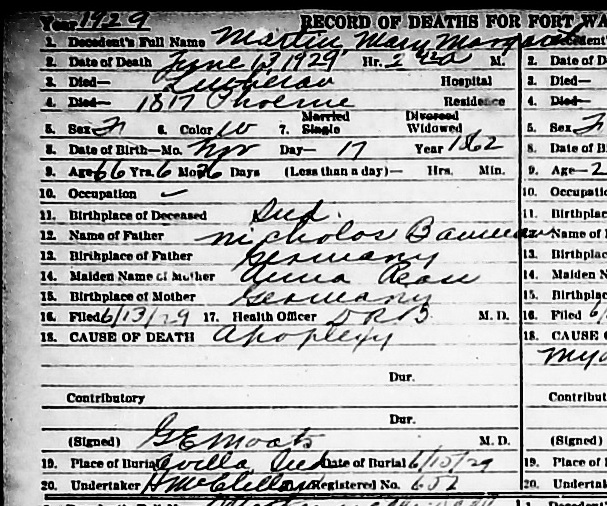 Year 1929 RECORD OF DEATHS FOR FORT WA
1. Decedent's Full Name Martin, Mary Margaret
2. Date of Death June 13 1929 Hr. 2 M. 2. Date of D
3. Died— Lutheran Hospital 3. Died—
4. Died— 1817 Residence 4. Died—
5. Sex F 6. Color W 7. Married Single Divorced Widowed 5. Sex F
8. Date of Birth—Mo. Nov Day— 17 Year 1862 8. Date of B
9. Age 66 Yrs. 6 Mos. 26 Days (Less than a day)— Hrs. Min. 9. Age—2
10. Occupation ✓ 10. Occupatio
11. Birthplace of Deceased Ind. 11. Birthplac
12. Name of Father Nicholos Name of
13. Birthplace of Father Germany 13. Birthplac
14. Maiden Name of Mother Anna 14. Maiden N
15. Birthplace of Mother Germany 15. Birthplac
16. Filed 6/13/29 17. Health Officer M. D. 16. Filed 6/
18. CAUSE OF DEATH Apoplexy 18. CAUSE O
Dur.
Contributory Contribut
Dur.
(Signed) G E Moats M. D. (Signed)
19. Place of Burial Avilla Ind Date of Burial 6/15/29 19. Place of
20. Undertaker Registered No. 652 20. Undertak